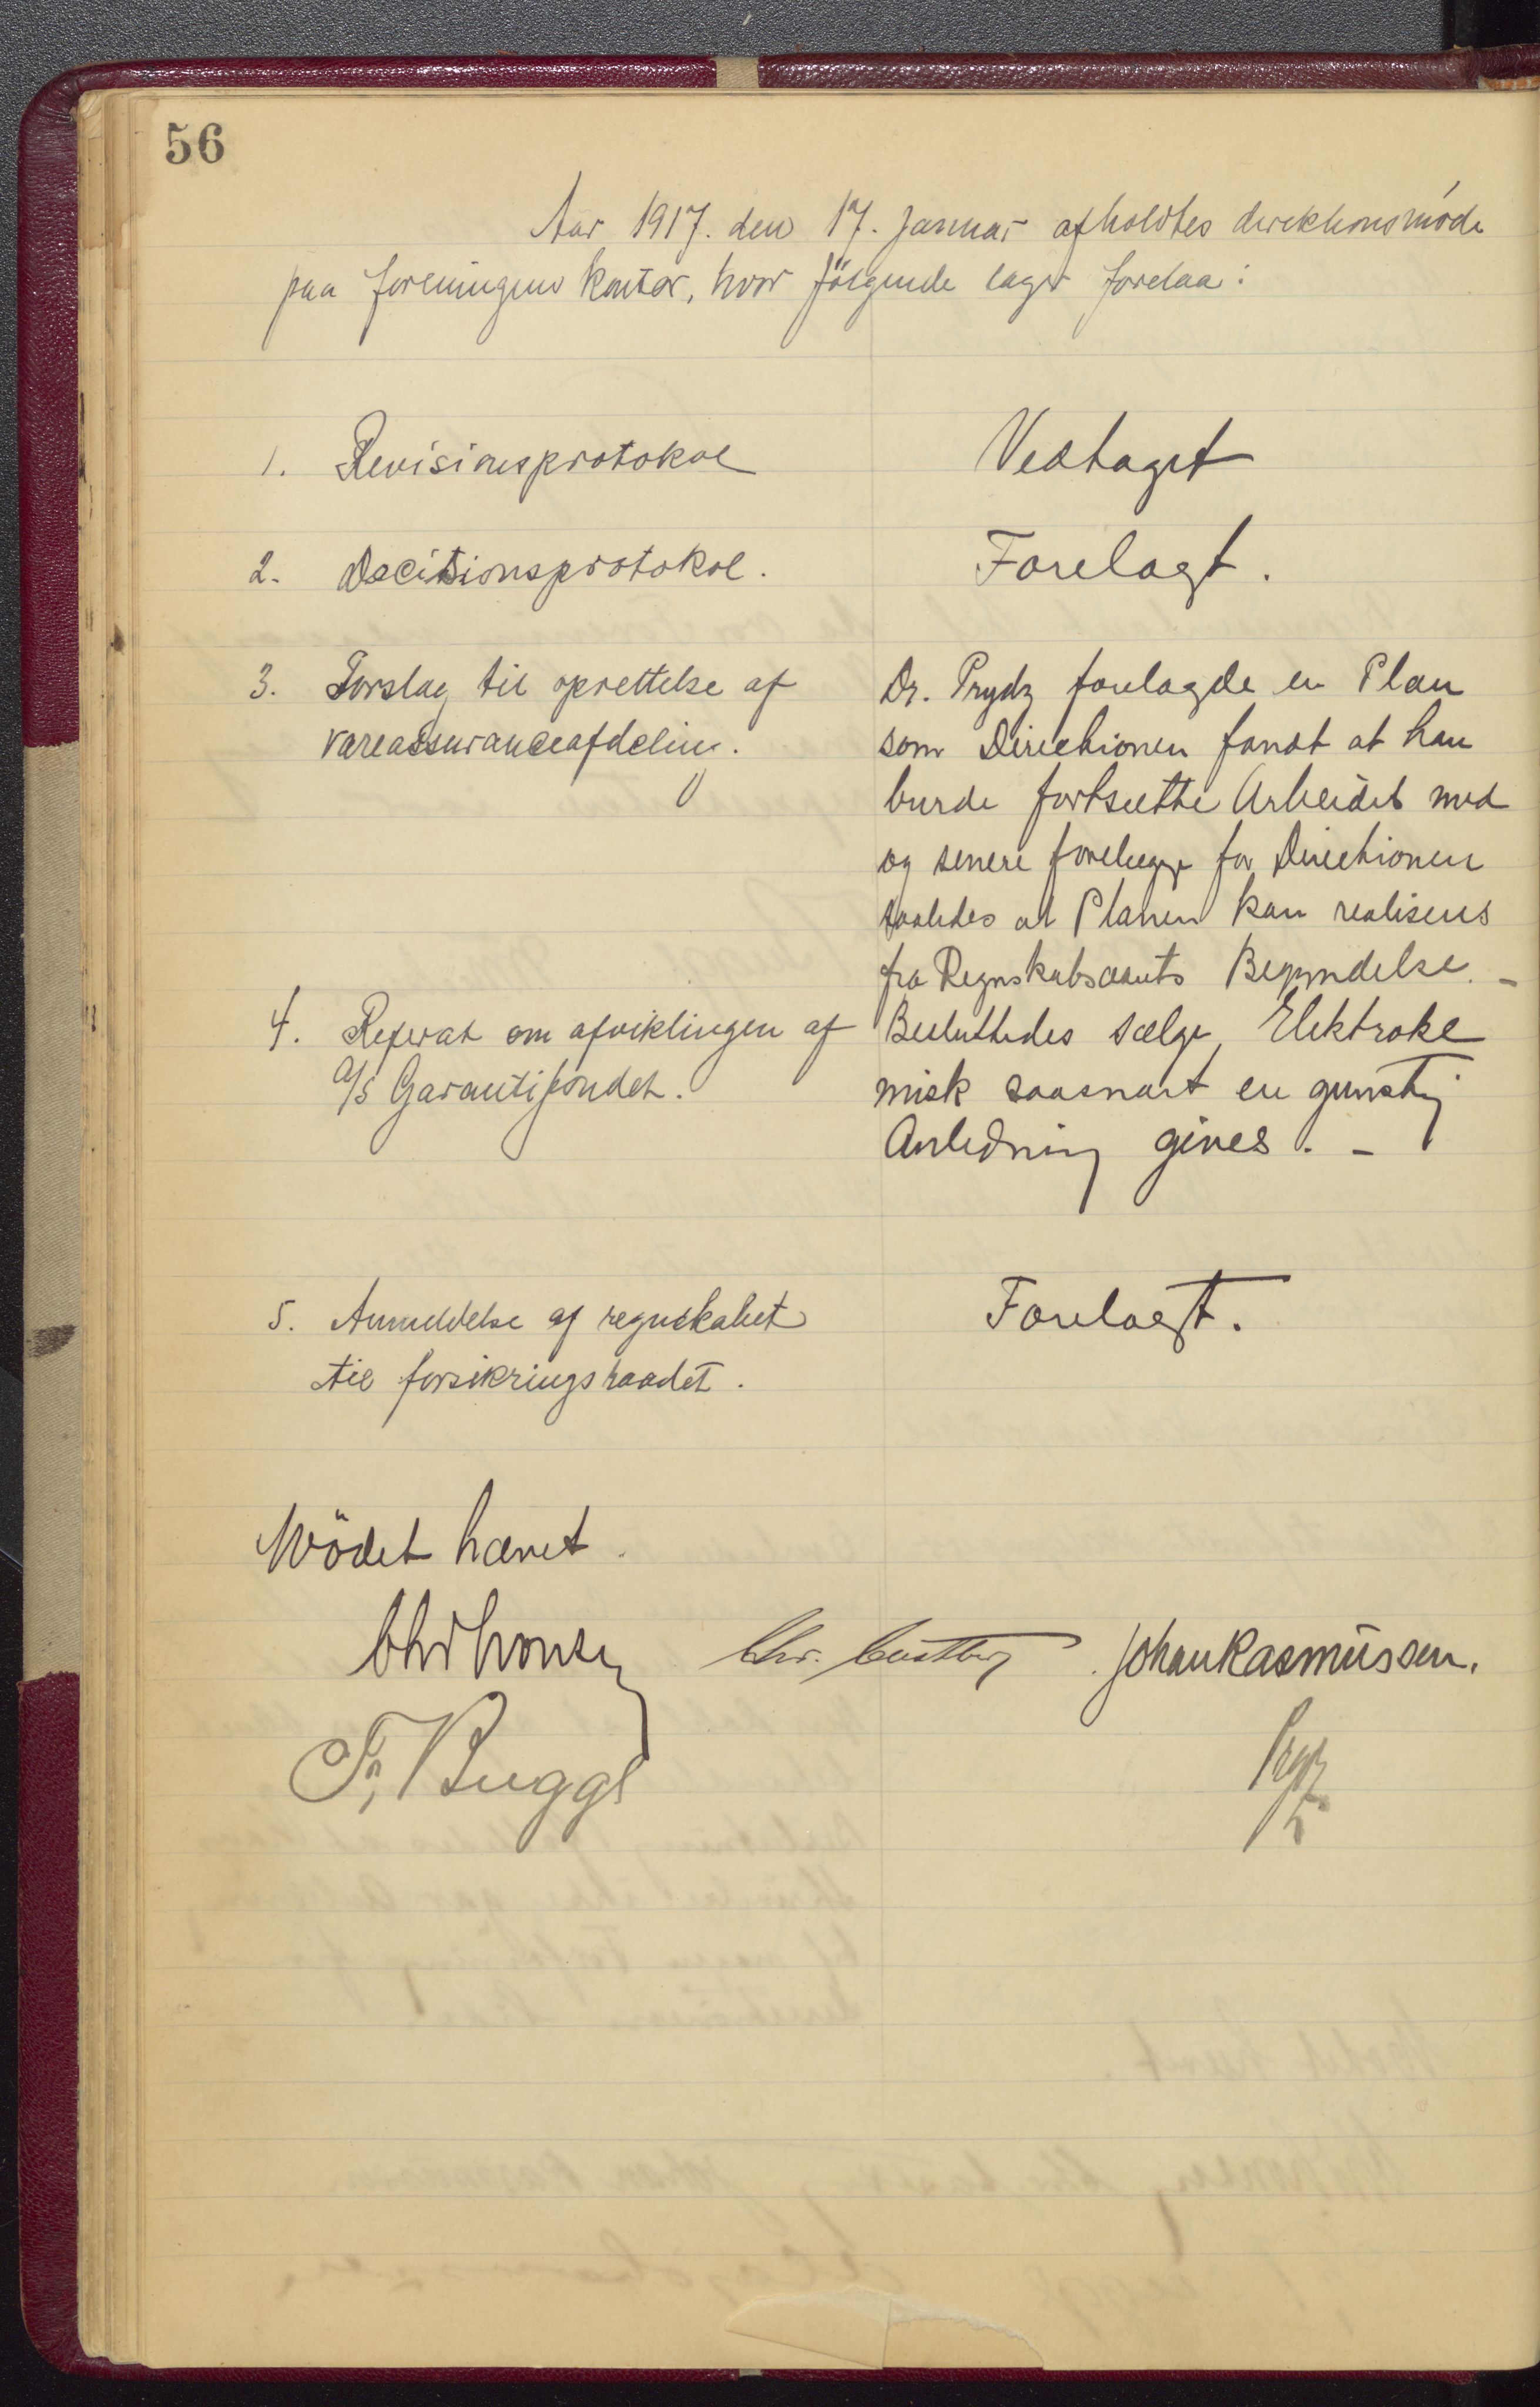 56
Aar 1917. den 17. januar afholdtes direktionsmöde
paa foreningens kontor, hvor fölgende sager forelaa:
1. Revisionsprotokol
Vedtaget
2. Decisionsprotokol.
Forelagt.
3. Forslag til oprettelse af
vareassuranceafdeling.
Dr. Prydz forelagde en Plan
som Directionen fandt at han
burde fortsætte Arbeidet med
og senere forelægge for Directionen
saaledes at Planen kan realiseres
fra Regnskabsaarets Begyndelse. –
4. Referat om afviklingen af
A/S Garantifondet.
Besluttedes sælge Elektroke
misk saasnart en gunstig
Anledning gives. –
5. Anmeldelse af regnskabet
til forsikringsraadet.
Forelagt.
Mödet hævet.
Chr. Johan Rasmussen.
Fr, Bugge
Prydz